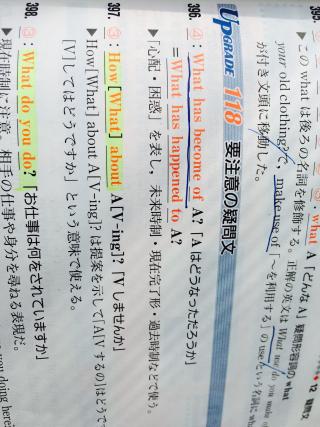 395.
③: what A「どんなA」疑問形容詞の what
▶この what は後ろの名詞を修飾する。正解の英文は What
your old clothing? で, make use of「〜を利用する」の use という名詞に
が付き文頭に移動した。
12 疑問文
UPGRADE 118 要注意の疑問文
396. ④: What has become of A?「A はどうなっただろうか」
=What has happened to A?
▶「心配・困惑」を表し, 未来時制・現在完了形・過去時制などで使う。
397. ③: How[What] about A[V-ing]?「V しませんか」
▶How[What] about A[V-ing]? は提案を示して「A[V するの]はどうで
[V]してはどうですか」という意味で使える。
398. ③: What do you do?「お仕事は何をされていますか」
▶現在時制に注意。相手の仕事や身分を尋ねる表現だ。
you doing here?